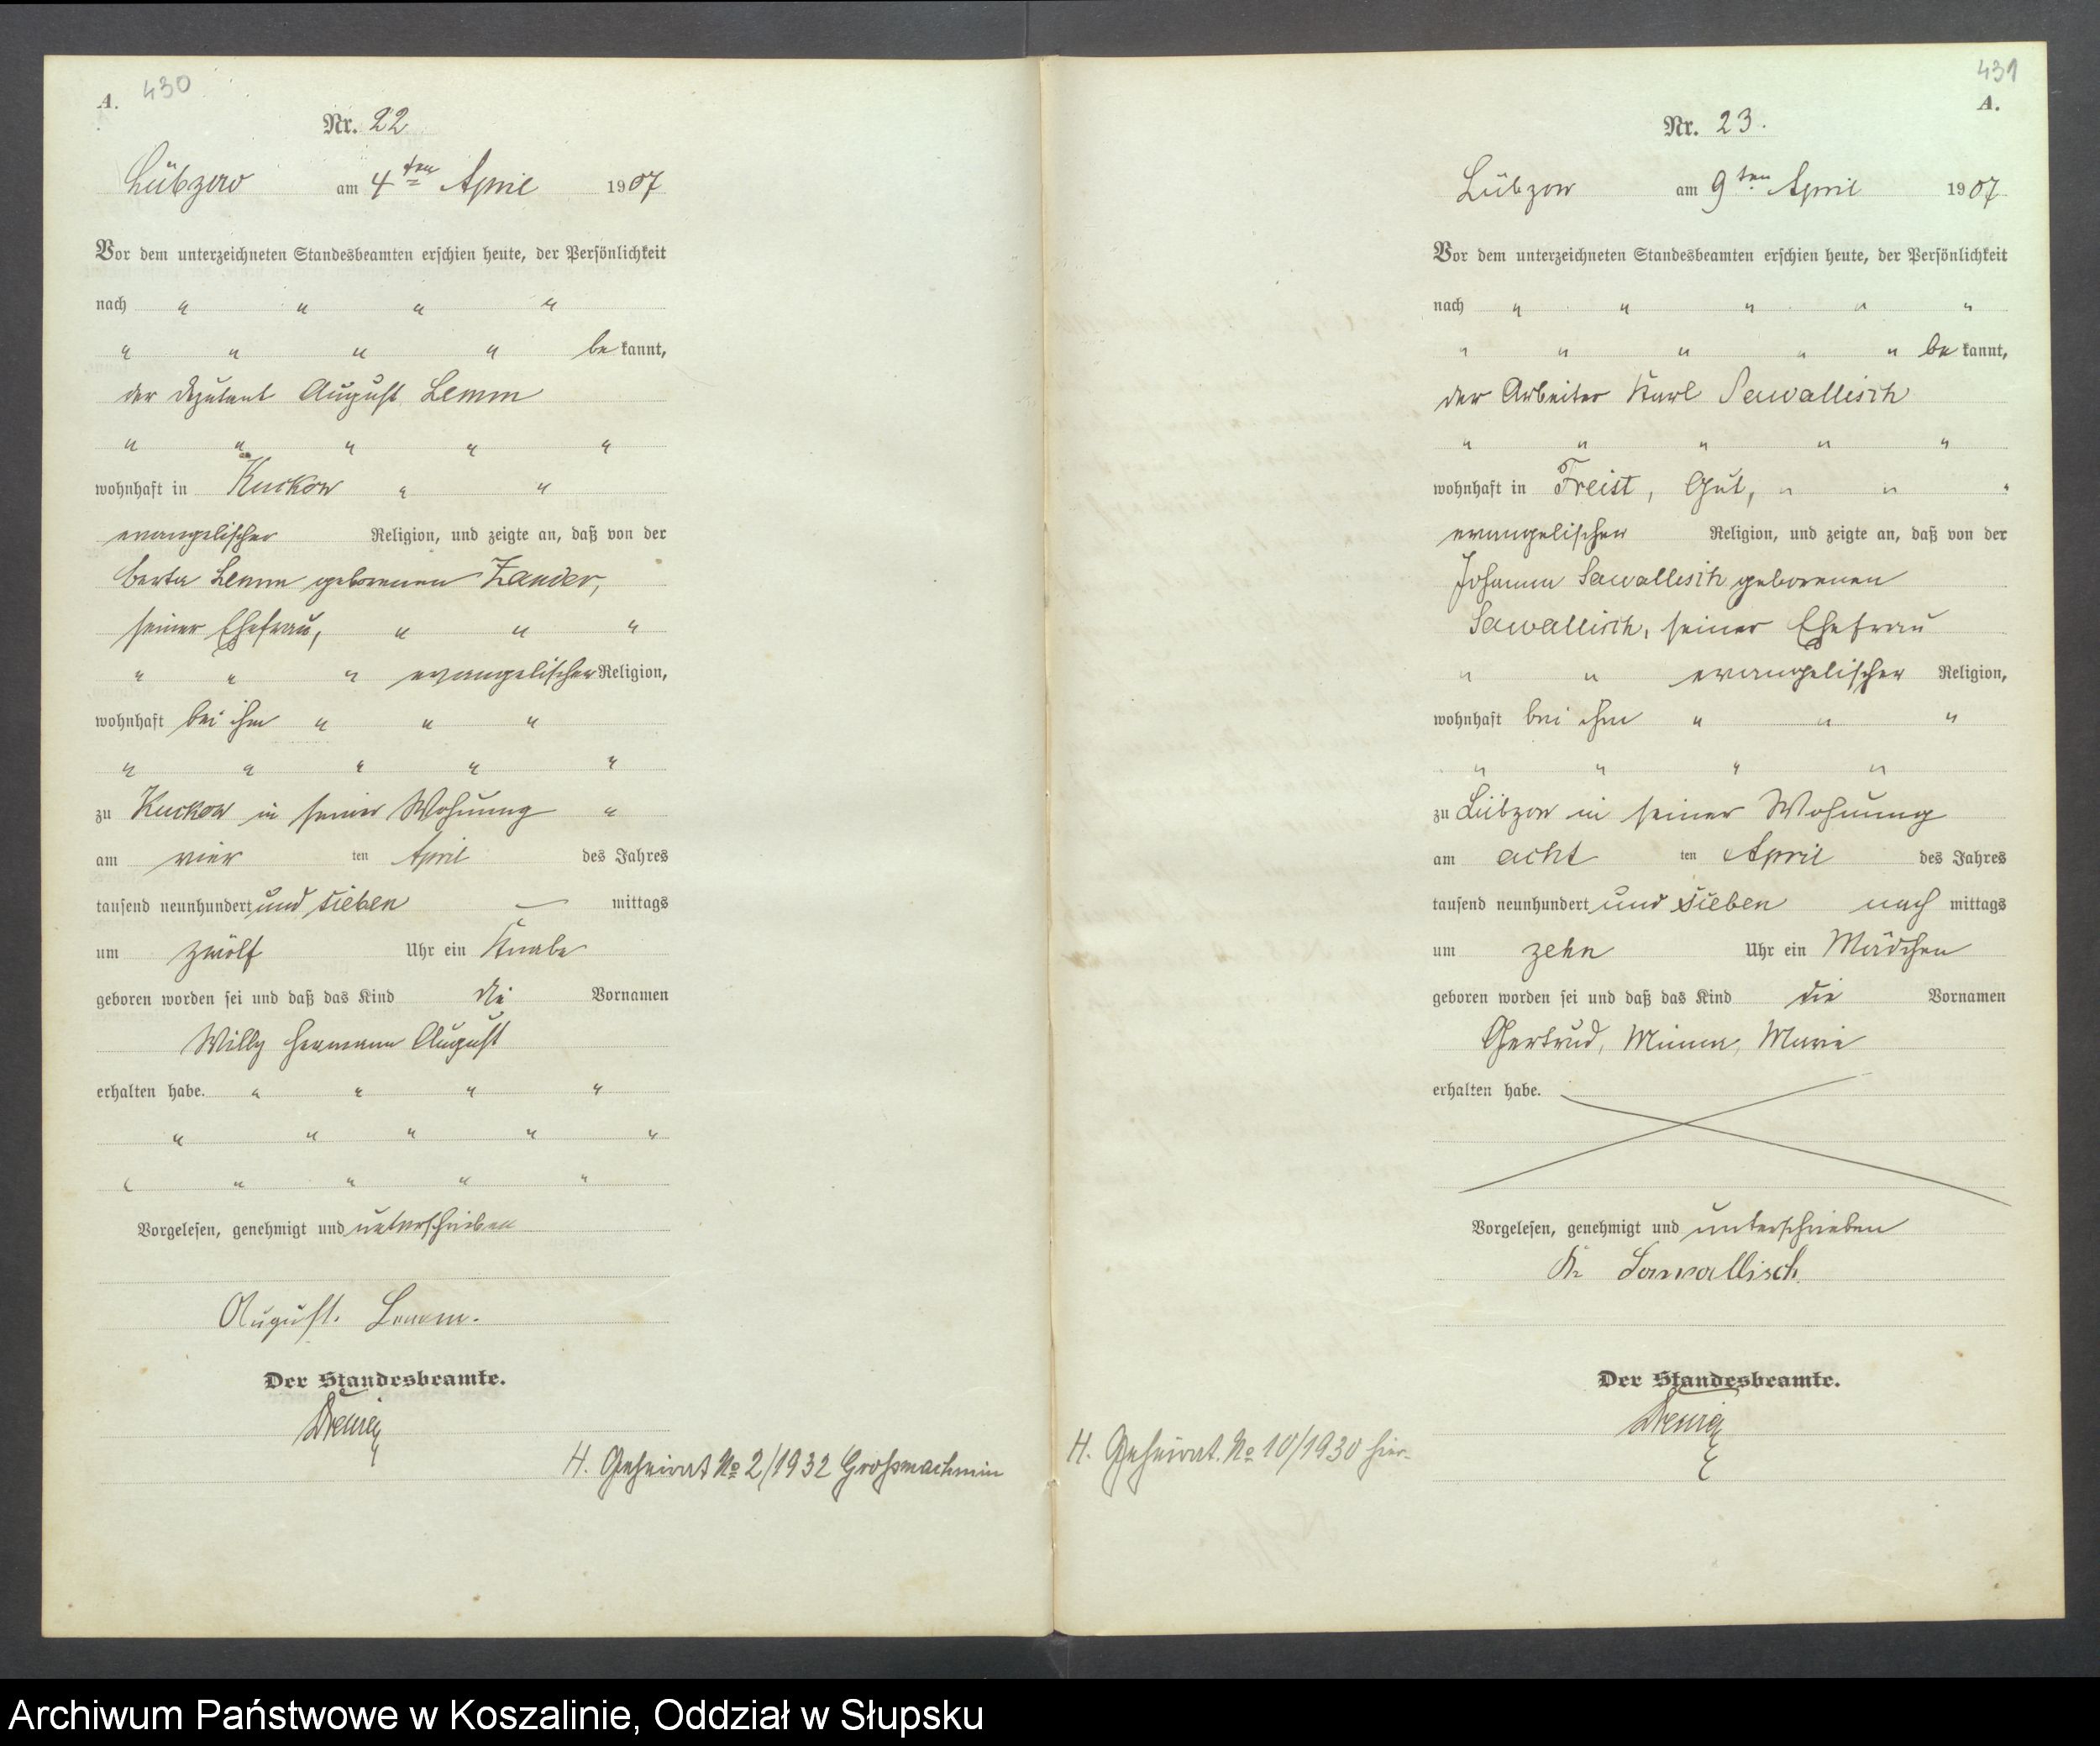 A. 430
Nr. 22
Lübzow am 4ten April 1907
Vor dem unterzeichneten Standesbeamten erschien heute, der Persönlichkeit
nach " " " "
" " " " bekannt,
der Deputant August Lemm
" " " " "
wohnhaft in Kuckow " "
evangelischer Religion, und zeigte an, daß von der
Berta Lemm geborenen Zander,
seiner Ehefrau, " " "
" " " evangelischer Religion,
wohnhaft bei ihm " " "
" " " " "
zu Kuckow in seiner Wohnung "
am vier ten April des Jahres
tausend neunhundert und sieben — mittags
um zwölf Uhr ein Knabe
geboren worden sei und daß das Kind die Vornamen
Willy Hermann August
erhalten habe. " " " "
" " " " "
" " " " "
Vorgelesen, genehmigt und unterschrieben
August. Lemm.
Der Standesbeamte.
H. Geheirat No 2/1932 Großmachmin
431
A.
Nr. 23.
Lübzow am 9ten April 1907
Vor dem unterzeichneten Standesbeamten erschien heute, der Persönlichkeit
nach " " " " "
" " " " " bekannt,
der Arbeiter Karl Sawallisch
" " " " "
wohnhaft in Freist, Gut, " " "
evangelischer Religion, und zeigte an, daß von der
Johanna Sawallisch geborenen
Sawallisch, seiner Ehefrau
" " evangelischer Religion,
wohnhaft bei ihm " " "
" " " "
zu Lübzow in seiner Wohnung
am acht ten April des Jahres
tausend neunhundert und sieben nach mittags
um zehn Uhr ein Mädchen
geboren worden sei und daß das Kind die Vornamen
Gertrud, Minna, Marie
erhalten habe.
Vorgelesen, genehmigt und unterschrieben
K Sawallisch
Der Standesbeamte.
H. Geheirat. No 10/1930 hier.
Archiwum Państwowe w Koszalinie, Oddział w Słupsku